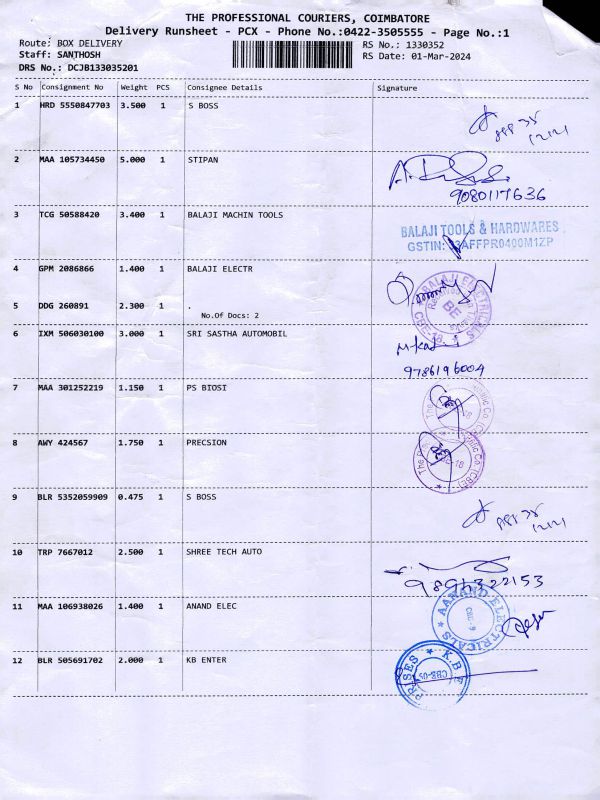 THE PROFESSIONAL COURIERS, COIMBATORE
Delivery Runsheet - PCX - Phone No.:0422-3505555 - Page No.:1
Route: BOX DELIVERY RS No.: 1330352
Staff: SANTHOSH RS Date: 01-Mar-2024
DRS No.: DCJB133035201
S No Consignment No Weight PCS Consignee Details Signature
1 HRD 5550847703 3.500 1 S BOSS
2 MAA 105734450 5.000 1 STIPAN
9080117636
3 TCG 50588420 3.400 1 BALAJI MACHIN TOOLS
BALAJI TOOLS & HARDWARES
GSTIN: 33AFFPR0400M1ZP
4 GPM 2086866 1.400 1 BALAJI ELECTR
BALAJI ELECTRICALS
BE
CBE-18
5 DDG 260891 2.300 1 .
No.Of Docs: 2
6 IXM 506030100 3.000 1 SRI SASTHA AUTOMOBIL
9786196004
7 MAA 301252219 1.150 1 PS BIOSI
8 AWY 424567 1.750 1 PRECSION
9 BLR 5352059909 0.475 1 S BOSS
10 TRP 7667012 2.500 1 SHREE TECH AUTO
11 MAA 106938026 1.400 1 ANAND ELEC
AANAND ELECTRICALS
CBE-9
12 BLR 505691702 2.000 1 KB ENTER
K.B
PRISES
CBE-05